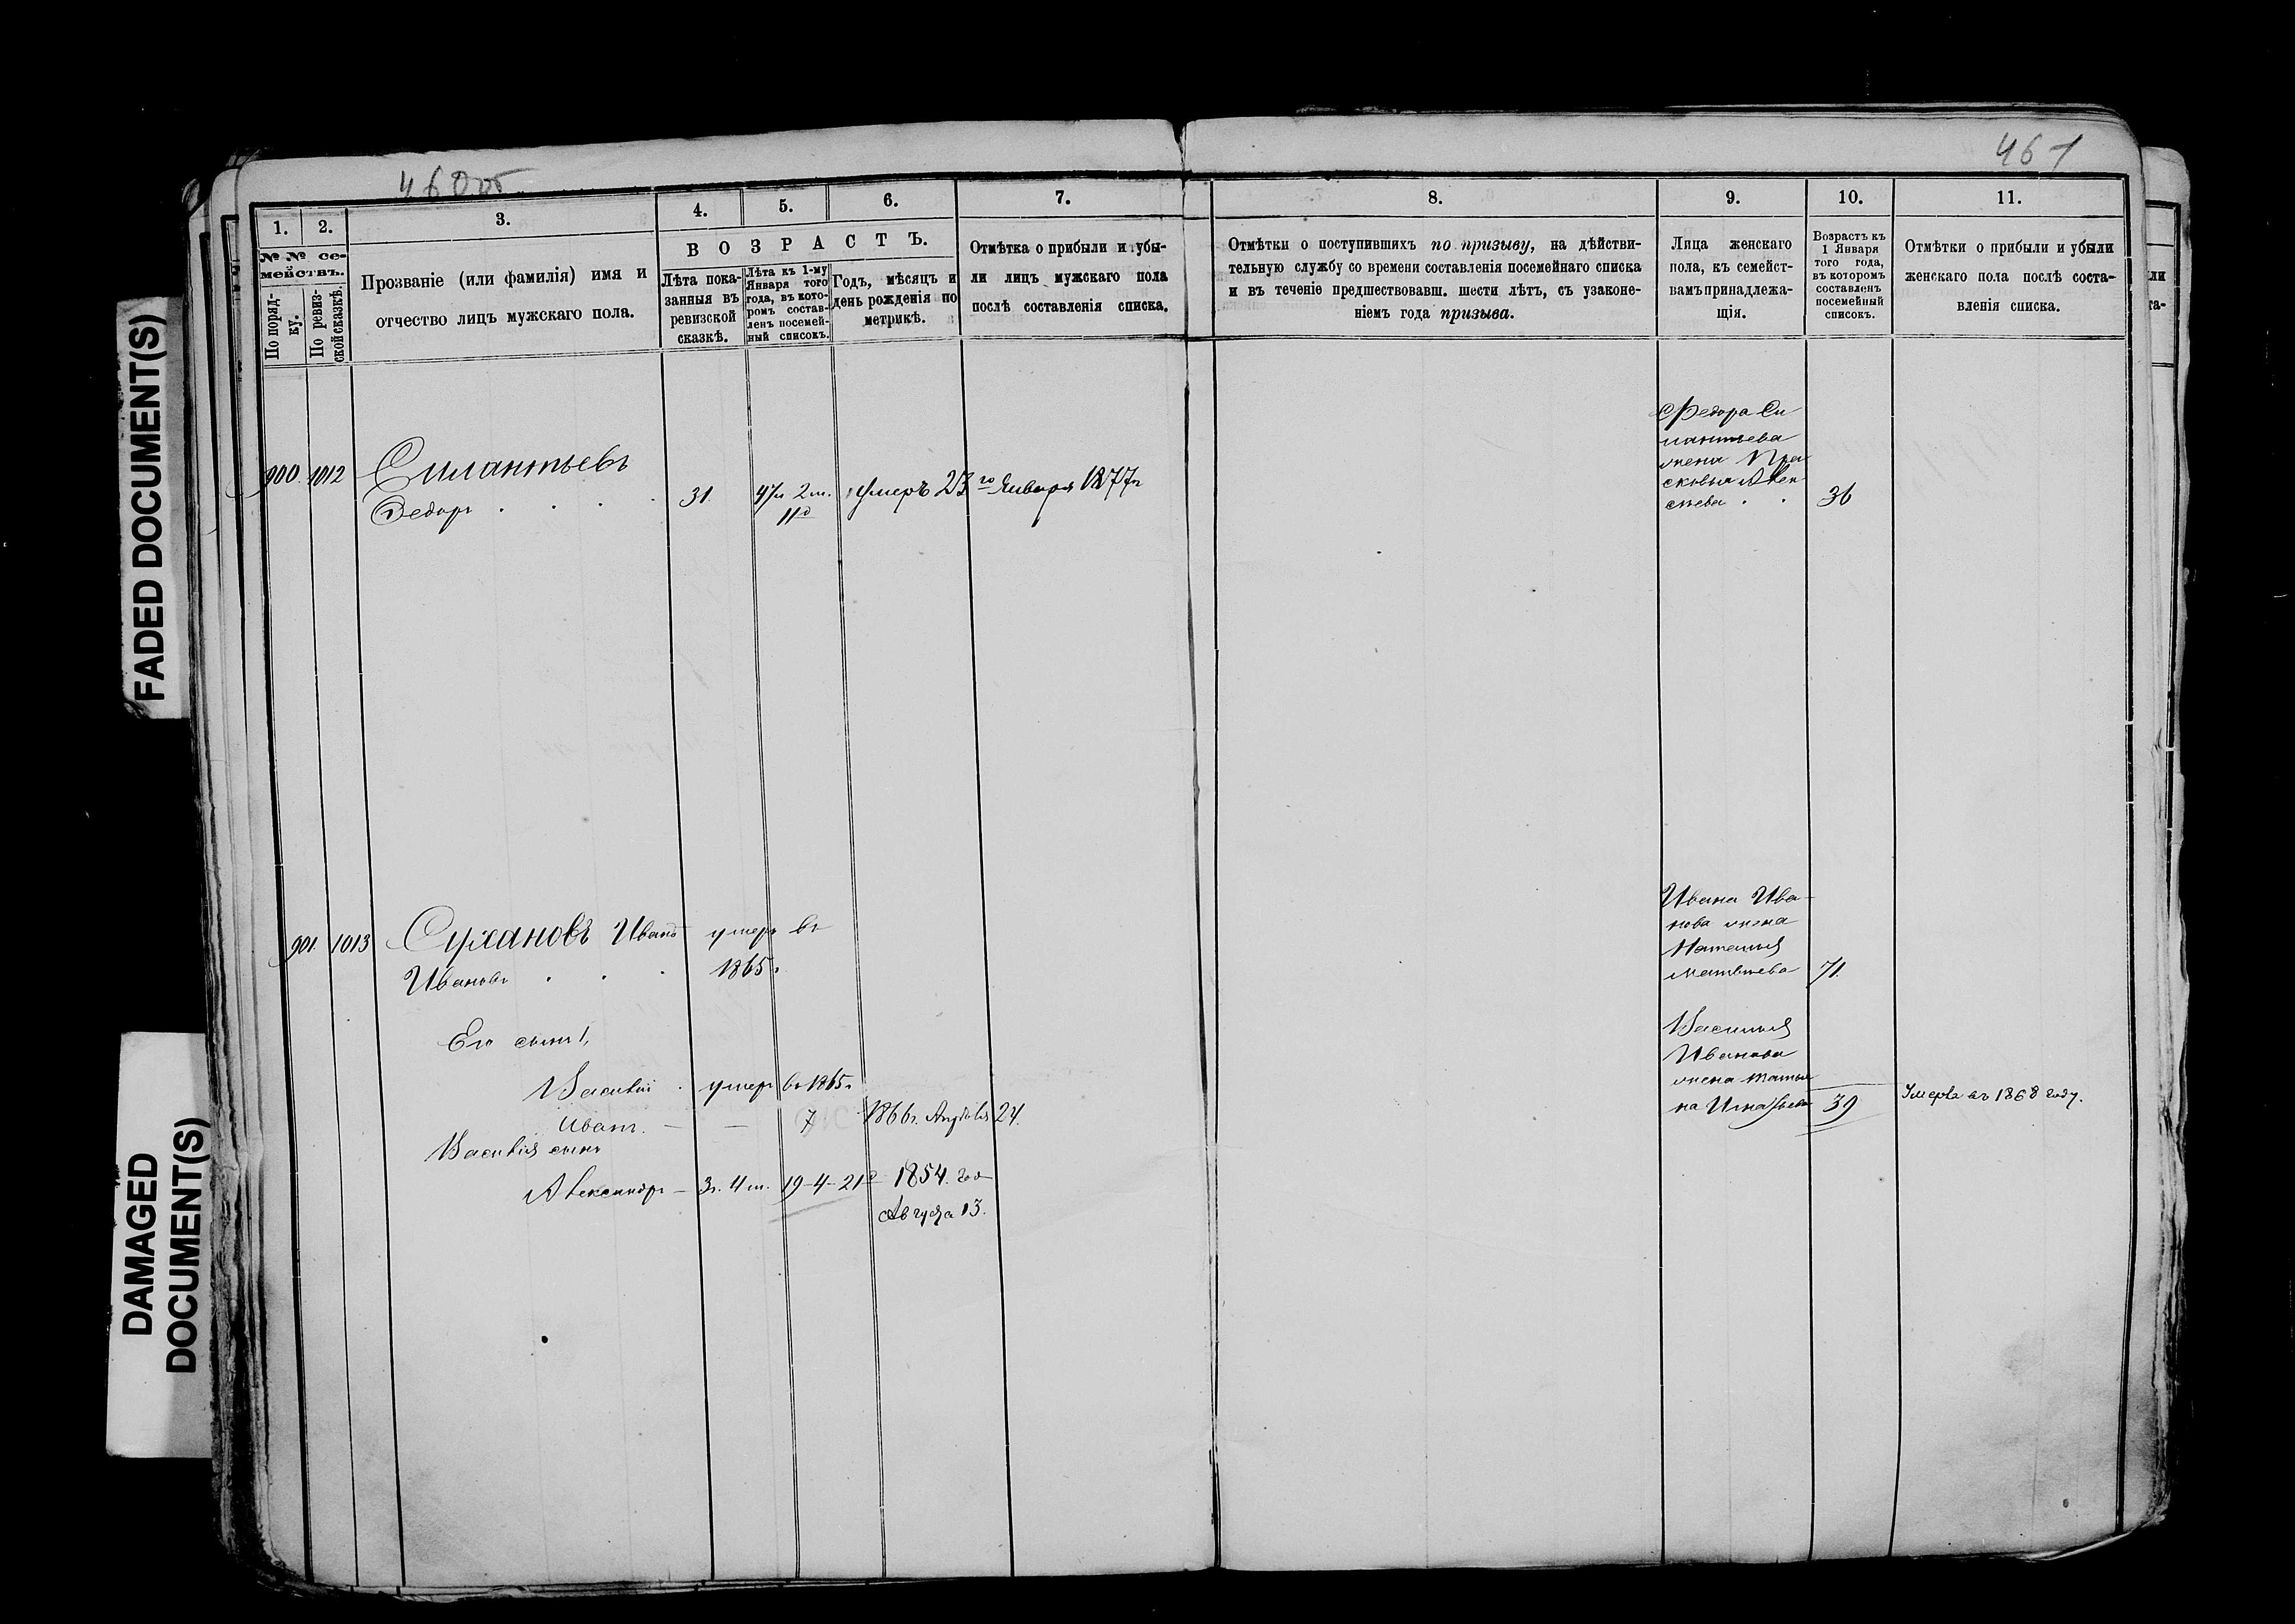 460 об
461
1.
2.
3.
4.
5.
6.
7.
8.
9.
10.
11.
№ № се-
мействъ.
По поряд-
ку.
По ревиз-
ской сказкѣ.
Прозваніе (или фамилія) имя и
отчество лицъ мужскаго пола.
ВОЗРАСТЪ.
Лѣта пока-
занныя въ
ревизской
сказкѣ.
Лѣта къ 1-му
Января того
года, въ кото-
ромъ состав-
ленъ посемей-
ный списокъ.
Годъ, мѣсяцъ и
день рожденія по
метрикѣ.
Отмѣтка о прибыли и убы-
ли лицъ мужскаго пола
послѣ составленія списка.
Отмѣтки о поступившихъ по призыву, на дѣйстви-
тельную службу со времени составленія посемейнаго списка
и въ теченіе предшествовавш. шести лѣтъ, съ узаконе-
ніемъ года призыва.
Лица женскаго
пола, къ семейст-
вамъ принадлежа-
щія.
Возрастъ къ
1 Января
того года,
въ которомъ
составленъ
посемейный
списокъ.
Отмѣтки о прибыли и убыли
женскаго пола послѣ соста-
вленія списка.
900. 1012 Силантьевъ
Федоръ . . . 31. 47л 2м. умеръ 23го Января 1877г
11д
Федора Си
лантьева
жена Пра
сковья Алек
сѣева . . 36
901. 1013 Сухановъ Иванъ умеръ въ
Ивановъ . . . 1865г
Ивана Ива-
нова жена
Наталья
Матвѣева 71.
Его сынъ 1,
Василій . умеръ въ 1865г
Иванъ. — — 7 1866г. Апрѣля 24.
Василія сынъ
Александръ — 3г. 4м. 19-4-21д 1854. год
Августа 13.
Василья
Иванова
жена Татья
на Игнатьева 39 Умерла въ 1868 году.
FADED DOCUMENT(S)
DAMAGED
DOCUMENT(S)